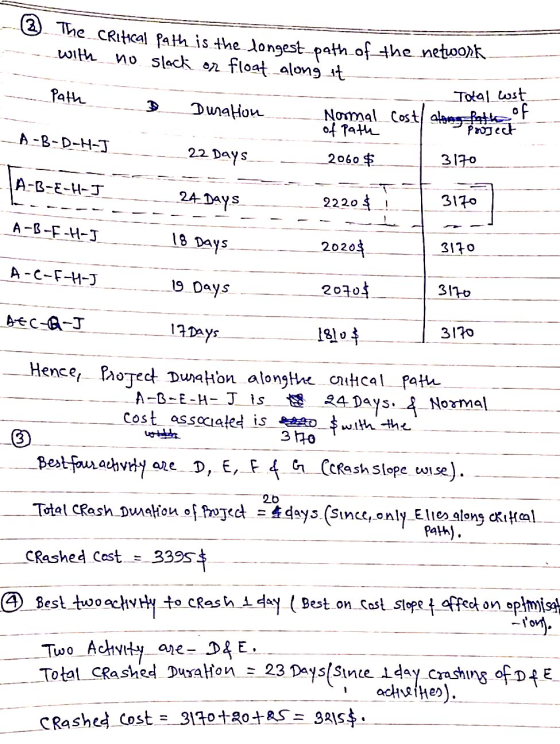 ② The Critical Path is the longest path of the network
with no slack or float along it
Path Duration Normal Cost of Path Total Cost of Project
A-B-D-H-J 22 Days 2060 $ 3170
A-B-E-H-J 24 Days 2220 $ 3170
A-B-F-H-J 18 Days 2020$ 3170
A-C-F-H-J 19 Days 2070$ 3170
A-C-G-J 17 Days 1810 $ 3170
Hence, Project Duration along the critical path
A-B-E-H-J is 24 Days. & Normal
cost associated is 3170 $ with the
③
Best four activity are D, E, F & G (Crash slope wise).
Total Crash Duration of Project = 20 days (Since, only E lies along critical
Path).
Crashed Cost = 3395 $
④ Best two activity to crash 1 day (Best on cost slope & affect on optimisat
-ion).
Two Activity are - D & E.
Total Crashed Duration = 23 Days (Since 1 day crashing of D & E
activities).
Crashed Cost = 3170+20+25 = 3215$.